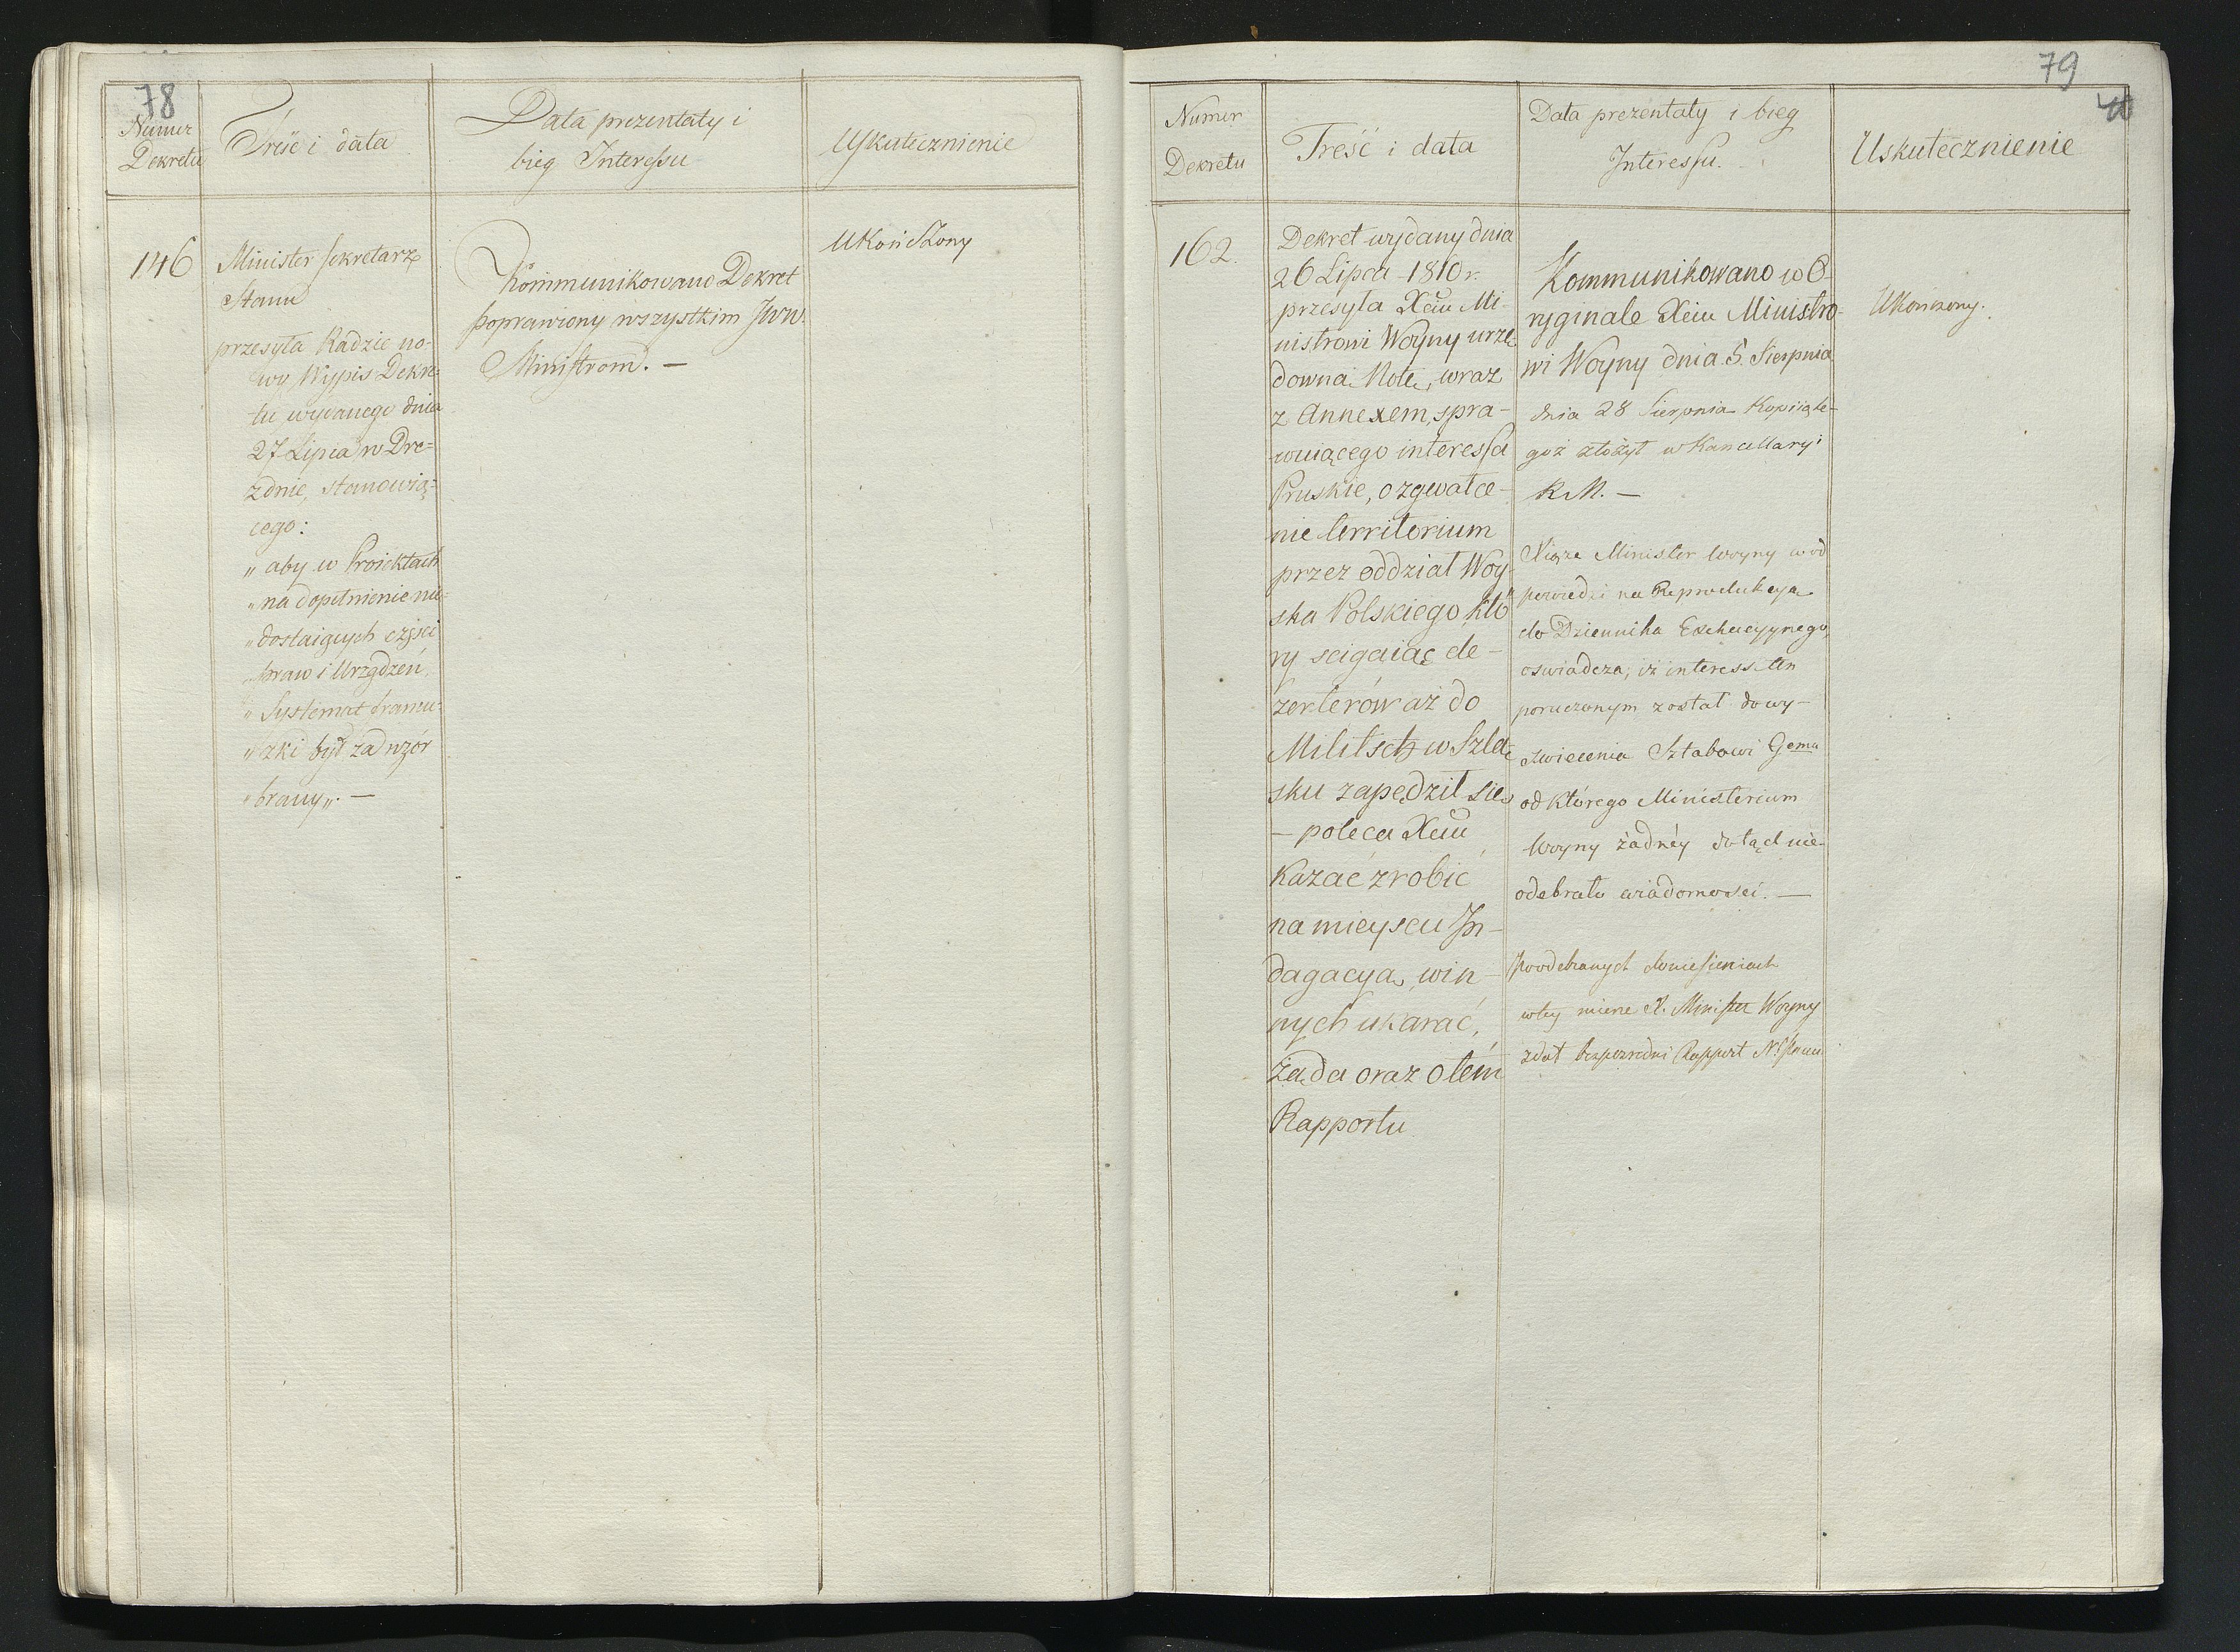 78
Numer
Dekretu
Treść i data
Data prezentaty i
bieg Interessu
Uskutecznienie
146
Minister Sekretarz
Stanu
przesyła Radzie no-
wy Wypis Dekre-
tu wydanego dnia
27 Lipca w Dre=
znie, stanowią=
cego:
„ aby w Proiektach
„ na dopełnienie nie-
„ dostaiących części
„ praw i Urządzeń,
„ Systemat francu-
„ zki był za wzór
„ brany„. —
Kommunikowano Dekret
poprawiony wszystkim JWW.
Ministrom. —
Ukończony
79
40
Numer
Dekretu
Treść i data
Data prezentaty i bieg
Interessu.
Uskutecznienie
162.
Dekret wydany dnia
26 Lipca 1810 r.
przesyła Xciu Mi-
nistrowi Woyny urzę-
downą Notę, wraz
z Annexem, spra-
wuiącego interessa
Pruskie, o zgwałce-
nie territorium
przez oddział Woy-
ska Polskiego, któ-
ry scigaiąc de-
zerterów aż do
Militsch w Szlą-
sku zapędził się,
— poleca Xciu
kazać zrobić
na mieyscu In-
dagacyą, win-
nych ukarać,
żąda oraz o tém
Rapportu
Kommunikowano w O-
ryginale Xciu Ministro-
wi Woyny dnia 5. Sierpnia
dnia 28 Sierpnia Kopiią te-
goż złożył w Kancellaryi
R. M. —
Xiąże Minister Woyny w od
powiedzi na Reprodukcyą
do Dziennika Exekucyynego,
oswiadcza, iż interess ten
poruczonym został do wy-
swiecenia Sztabowi Gemu
od którego Ministerium
Woyny żadnéy dotąd nie-
odebrało wiadomosci. —
Po odebranych doniesieniach
w tey mierze X. Minister Woyny
zdał bezpozredni Rapport N. Panu
Ukończony.